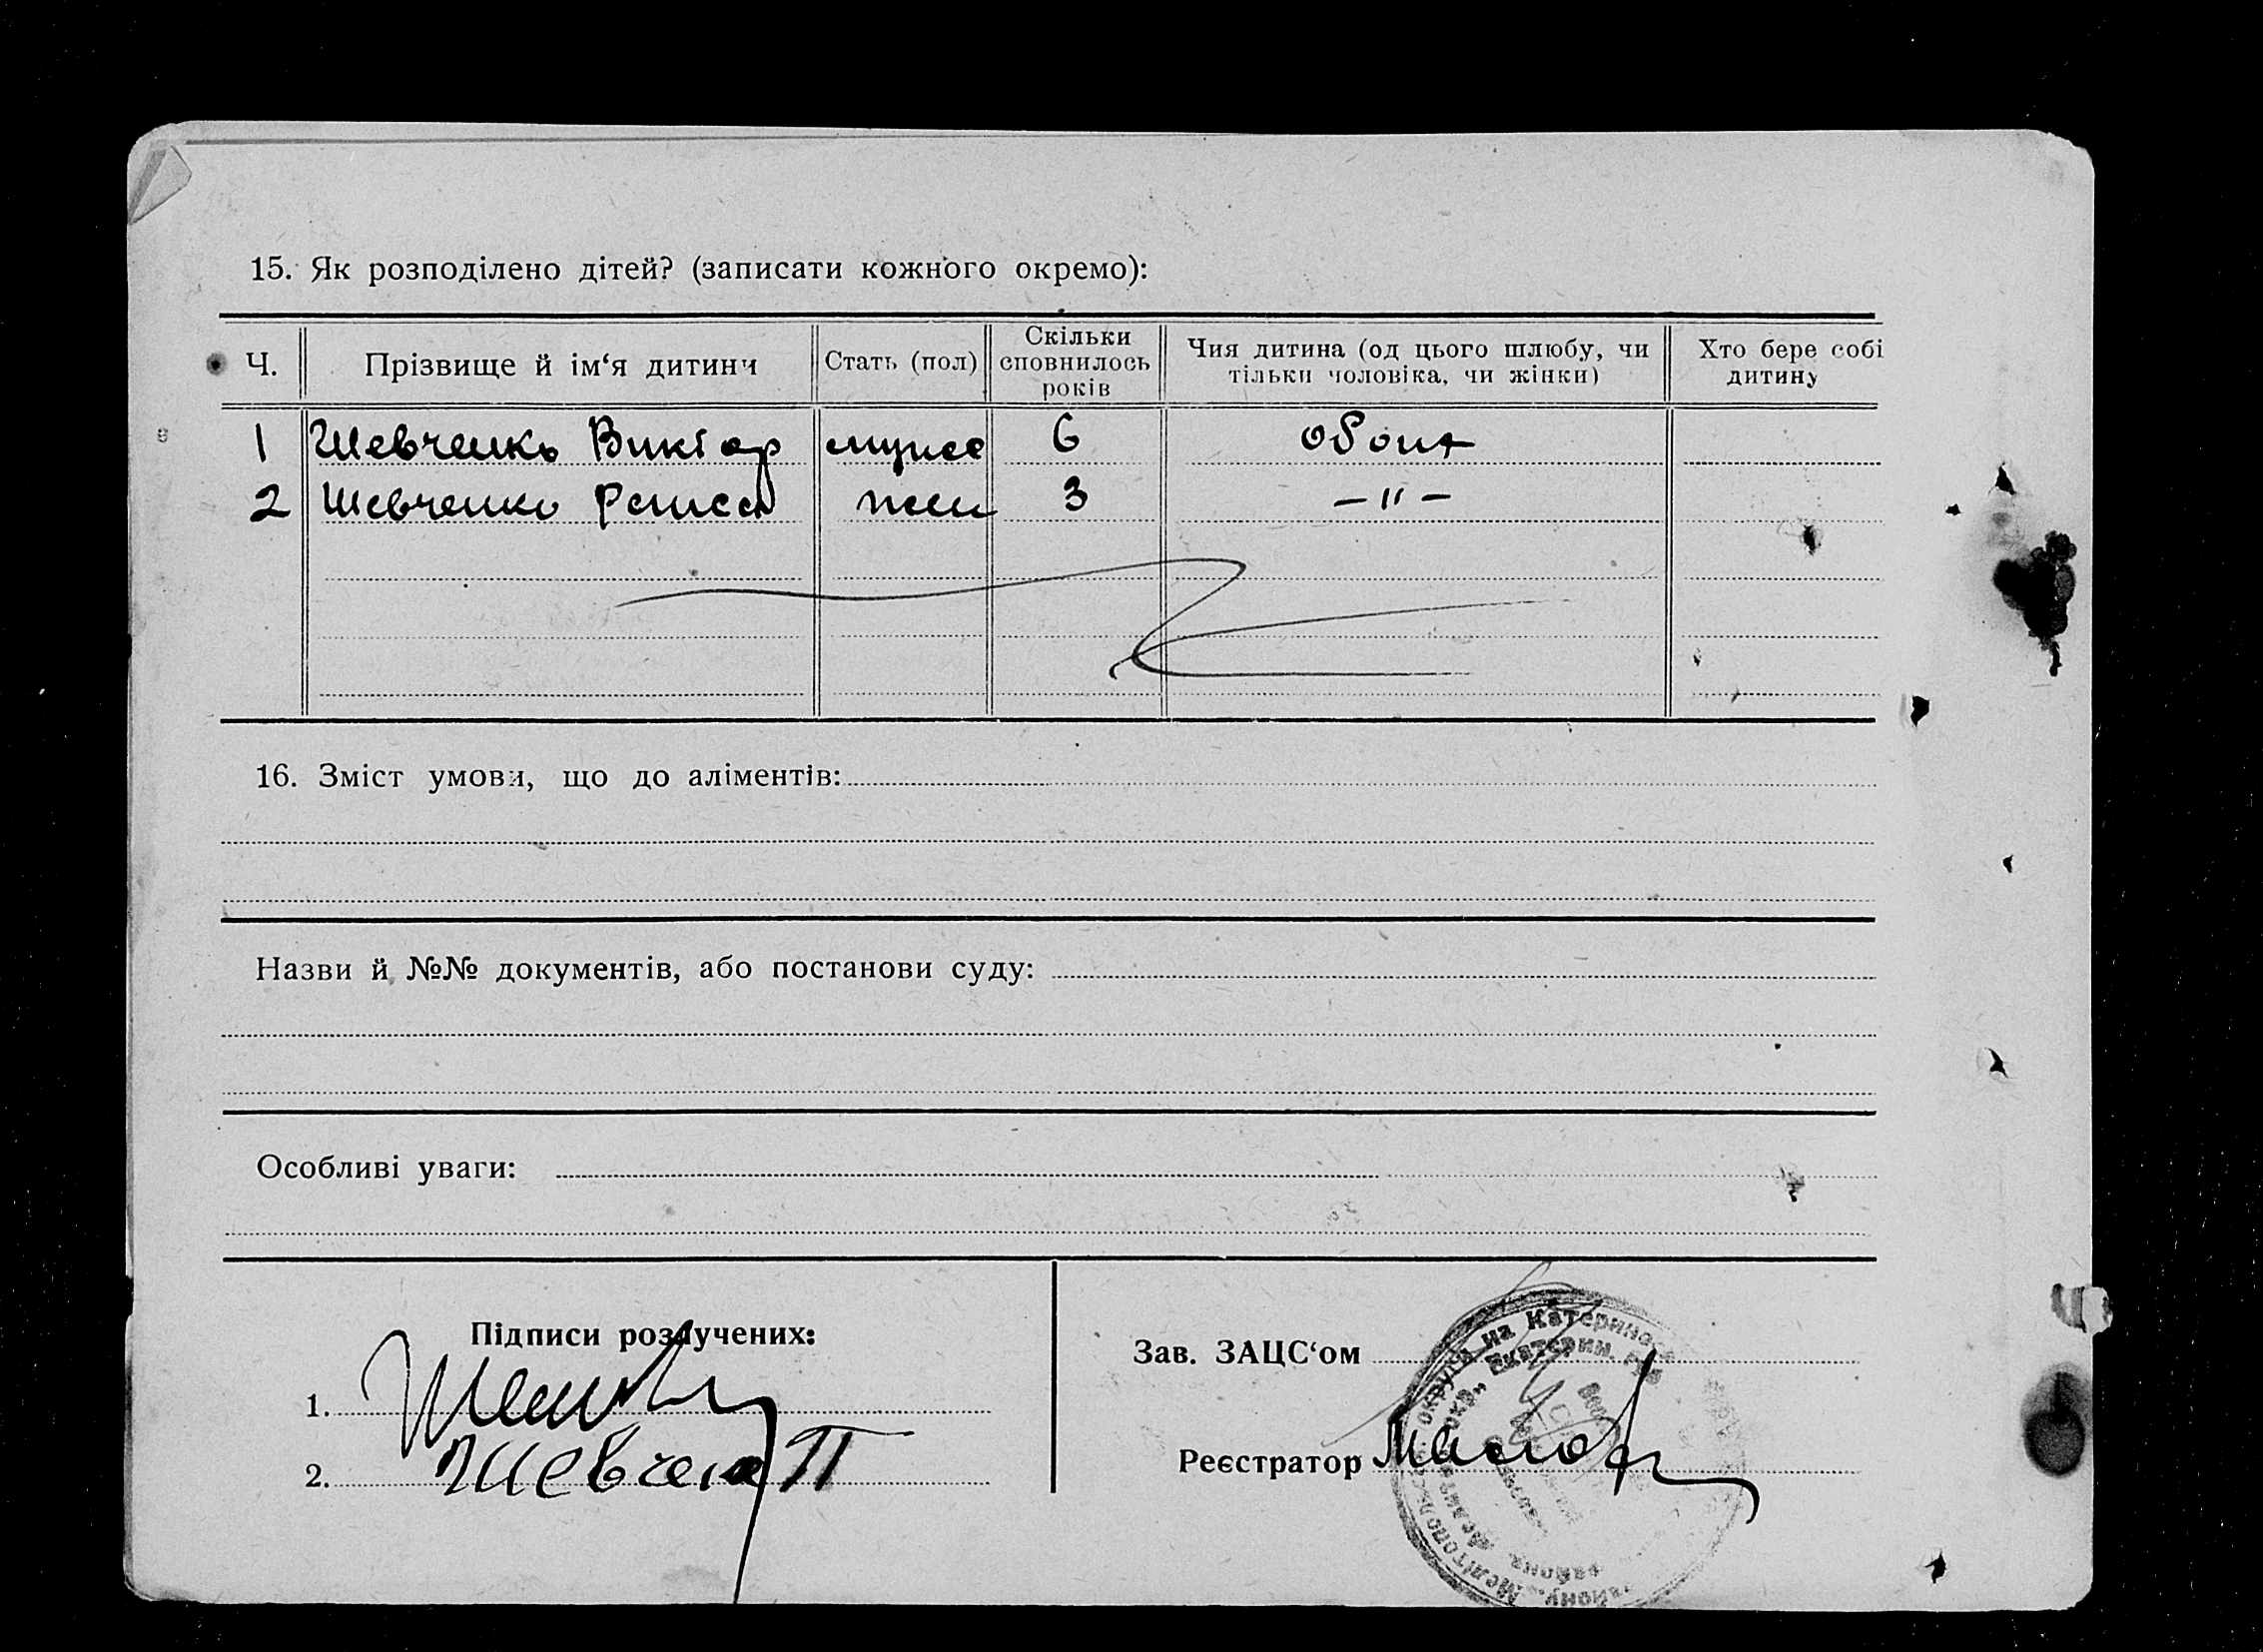 15. Як розподілено дітей? (записати кожного окремо):
Ч. Прізвище й ім‘я дитини Стать (пол) Скільки сповнилось років Чия дитина (од цього шлюбу, чи тільки чоловіка, чи жінки) Хто бере собі дитину
1 Шевченко Виктор мужск 6 обоих
2 Шевченко жен 3 — " —
16. Зміст умови, що до аліментів:
Назви й №№ документів, або постанови суду:
Особливі уваги:
Підписи розлучених:
1.
2. Шевченко П
Зав. ЗАЦС‘ом
Реєстратор